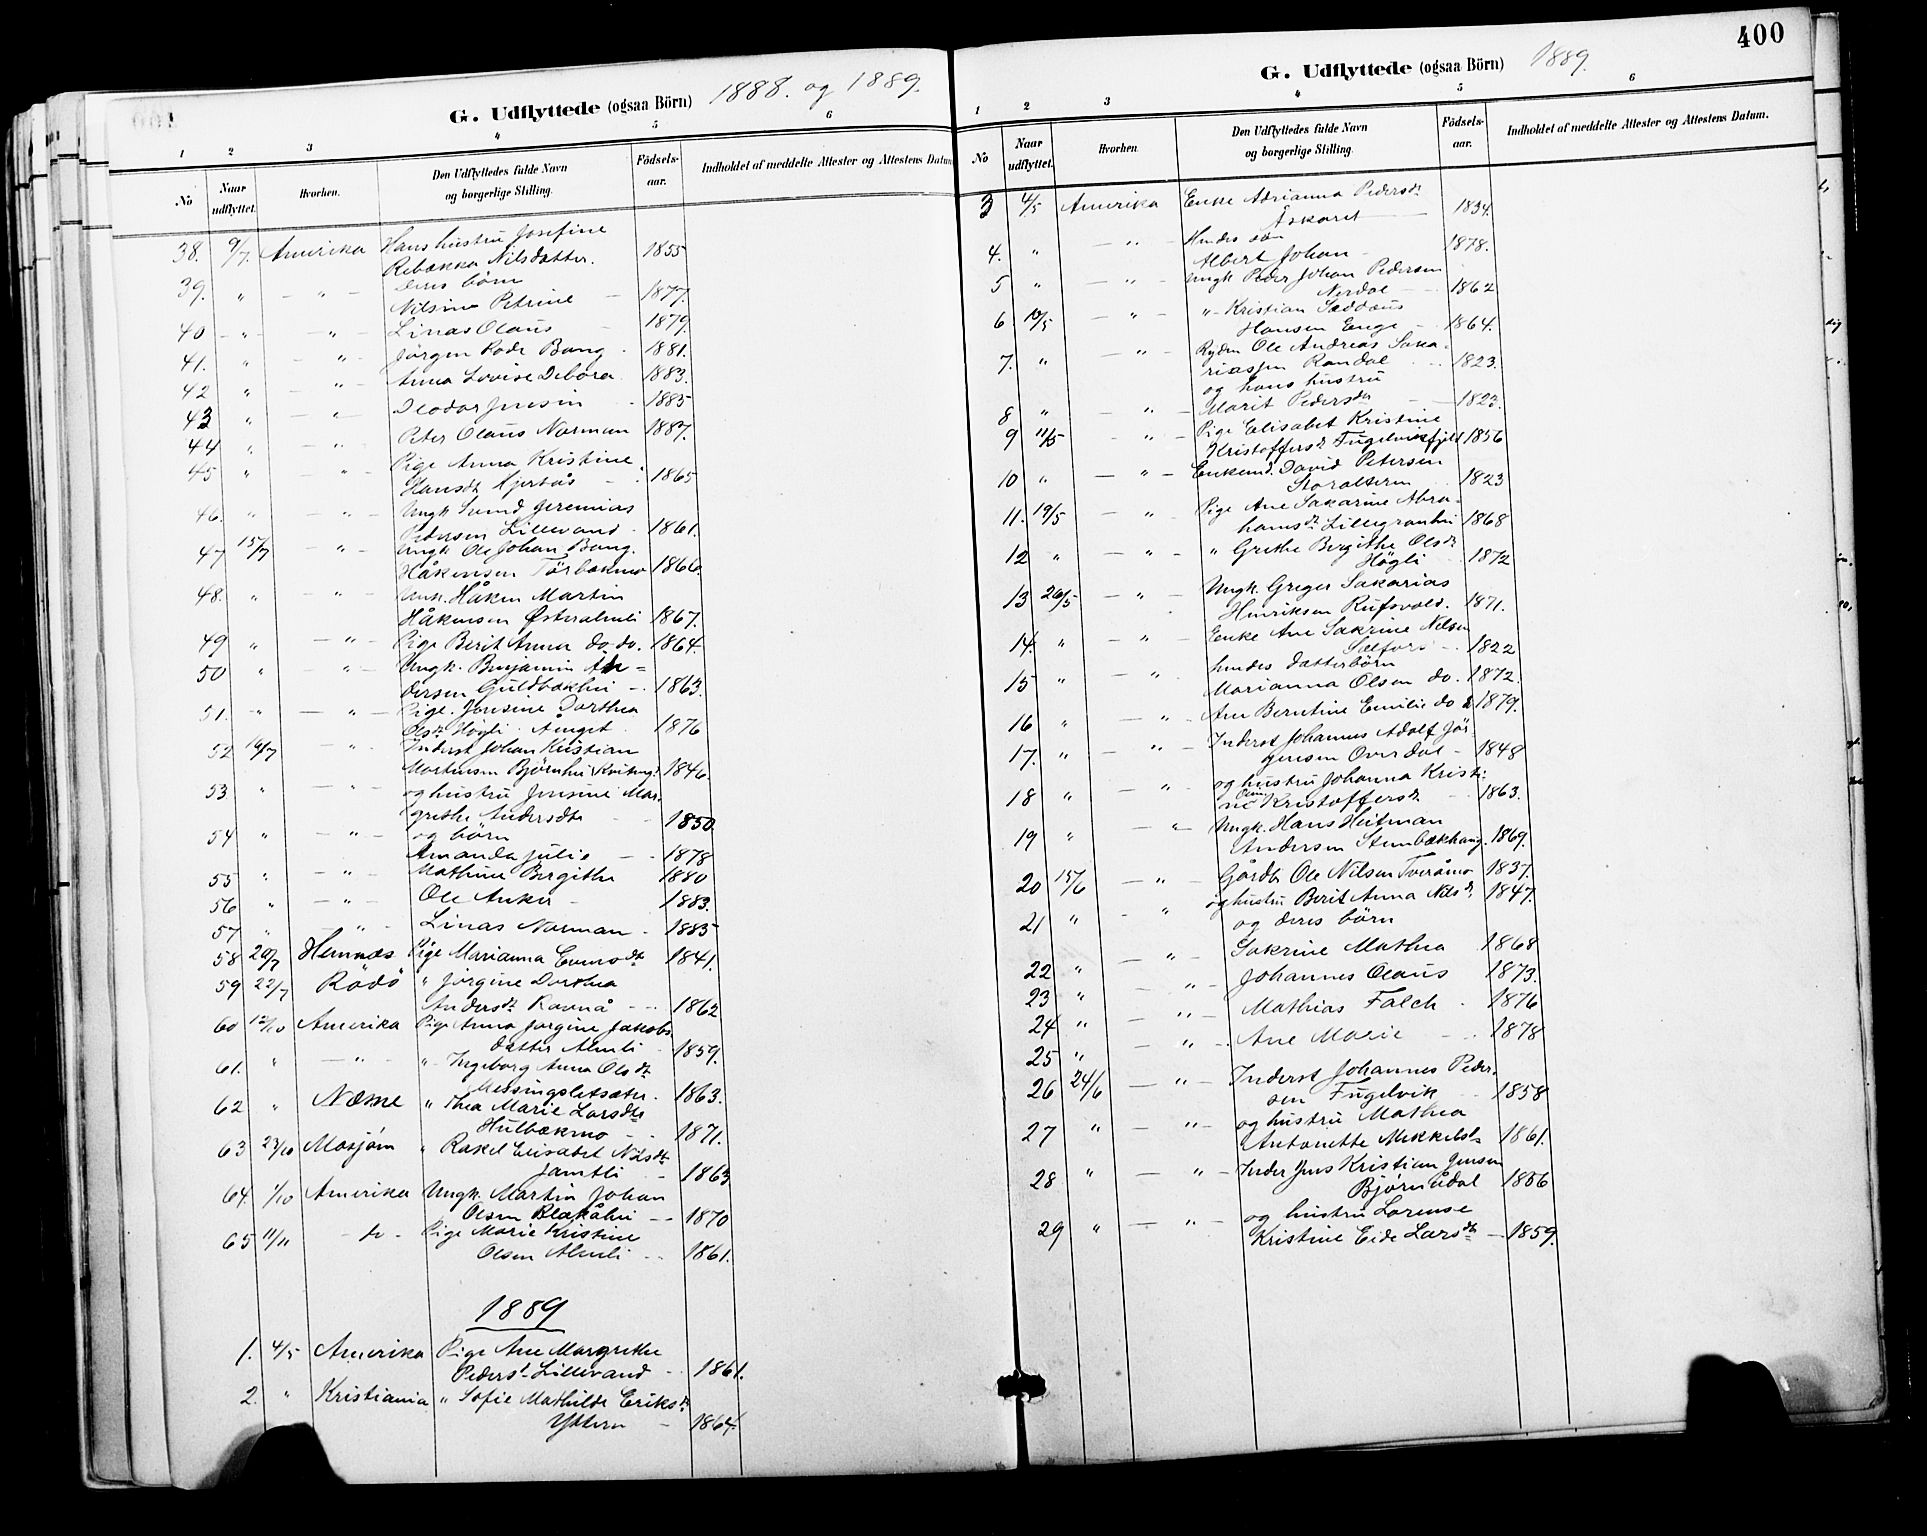 G. Udflyttede (ogsaa Börn) 1888. og 1889.
1 2 3 4 5 6
No Naar udflyttet. Hvorhen. Den Udflyttedes fulde Navn og borgerlige Stilling. Födsels-aar. Indholdet af meddelte Attester og Attestens Datum
38. 9/7. Amerika Hans hustru Josefine
Rebekka Nilsdatter. 1855
39. " — " — Deres börn
Nilsine Petrine — 1877.
40 " — " — Linas Olaus 1879.
41. " — " — Jörgen Rode Bang 1881.
42 " — " — Anna Lovise Debora 1883.
43 " — " — Teodor Jensen 1885
44 " — " — Peter Olaus Norman 1887.
45 " — " — Pige Anna Kristine
Hansdt. 1865
46. " — " — Ungk. Jeremias
Pedersen Lillevand 1861.
47 15/7 — " — Ungk. Ole Johan Bang
Håkensen 1866
48. " — " — Ungk. Håken Martin
Håkensen 1867.
49 " — " — Pige Berit Anna do. do. 1864.
50 " — " — Ungk. Benjamin An=
dersen 1863.
51. " — " — Pige Jensine Dorthea
Olsdt. Högli 1876
52 16/7 — " — Inderst Johan Kristian
Mortensen 1846.
53 " — " — og hustru Jensine Mar-
grethe Andersdtr 1850.
54 " — " — og börn
Amanda Julie — 1878
55 " — " — Mathine Bergithe 1880
56 " — " — Ole Anker — 1883.
57 " — " — Linas Norman 1885
58 20/7 Hemnæs Pige Marianna 1841.
59 22/7 Rödö " Jörgine Dorthea
Andersdt. Ravnå — 1862
60 12/10 Amerika Pige Anna Jörgine Jakobs
datter Almli 1859.
61. " — " — " Ingeborg Anna Olsdt.
Messingsletsæter 1863.
62 " Næsne " Thea Marie Larsdtr
Hulbækmo 1871.
63 23/10 Mosjøen " Rakel Elisabet Nilsdt.
Jamtli 1863
64. 1/10 Amerika Ungk. Martin Johan
Olsen Blakåli — 1870
65 11/11 — do — Pige Marie Kristine
Olsen Almli — 1861.
1889
1. 4/5 Amerika Pige Ane Margrethe
Pedersdt. Lillevand — 1861.
2. " Kristiania " Sofie Mathilde Eriksdt.
Yttern — 1864.
400
G. Udflyttede (ogsaa Börn) 1889.
1 2 3 4 5 6
No Naar udflyttet. Hvorhen Den Udflyttedes fulde Navn og borgerlige Stilling. Födsels-aar. Indholdet af meddelte Attester og Attestens Datum.
3 4/5 Amerika Enke Adrianna Pedersdt.
1834.
4. " — " — Hendes sön
Albert Johan 1878.
5 " — " — Ungk. Peder Johan Pedersen
Nerdal 1862
6 10/5 — " — " Kristian Taddæus
Hansen Enge 1864.
7. " — " — Ole Andreas Saka-
riassen Randal 1823.
8 " — " — og hans hustru
Marit Pedersdt. 1822.
9 11/5 — " — Pige Elisabet Kristine
Kristoffersdt. 1856
10 " — " — Enkemd. David Petersen
Storalteren 1823
11. 19/5 — " — Pige Ane Sakarine Abra-
hamsdt. 1868
12 " — " — " Grethe Bergithe Olsdt.
Högli 1872
13 26/5 — " — Ungk. Greger Sakarias
Henriksen Rufsvold. 1871.
14. " — " — Enke Ane Sakrine Nilsen
Selfors — 1822
15 " — " — hendes datterbörn
Marianna Olsen do. 1872.
16 " — " — Ane Berntine Emilie do 1879.
17. " — " — Inderst Johannes Adolf Jör-
gensen Overdal — 1848
18 " — " — og hustru Johanna Kristi-
ne Kristoffersdt. — 1863.
19 " — " — Ungk. Hans Heitman
Andersen 1869.
20 15/6 — " — Gårdb. Ole Nilsen Tveråmo 1837.
21 " — " — og hustru Berit Anna Nilsdt. 1847.
og deres börn
22 " — " — Sakrine Mathea 1868
23 " — " — Johannes Olaus 1873.
24 " — " — Mathias Falch 1876
25 " — " — Ane Marie 1878
26 24/6 — " — Inderst Johannes Peder-
sen Fugelvik 1858
27 " — " — og hustru Mathea
Antonette Mikkelsdt. 1861.
28 " — " — Inder Jens Kristian Jensen
Bjørnådal 1856
29 " — " — og hustru Lorense
Kristine Eide Larsdt. — 1859.